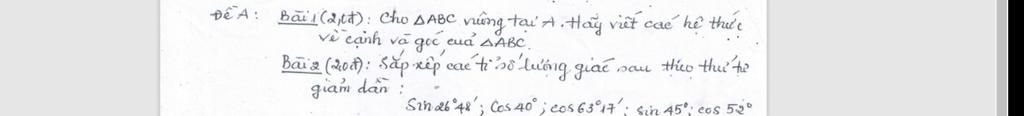 Đề A: Bài 1 (2,0đ): Cho ΔABC vuông tại A. Hãy viết các hệ thức
về cạnh và góc của ΔABC.
Bài 2 (2,0đ): Sắp xếp các tỉ số lượng giác sau theo thứ tự
giảm dần:
Sin 26°48'; Cos 40°; cos 63°17'; sin 45°; cos 52°